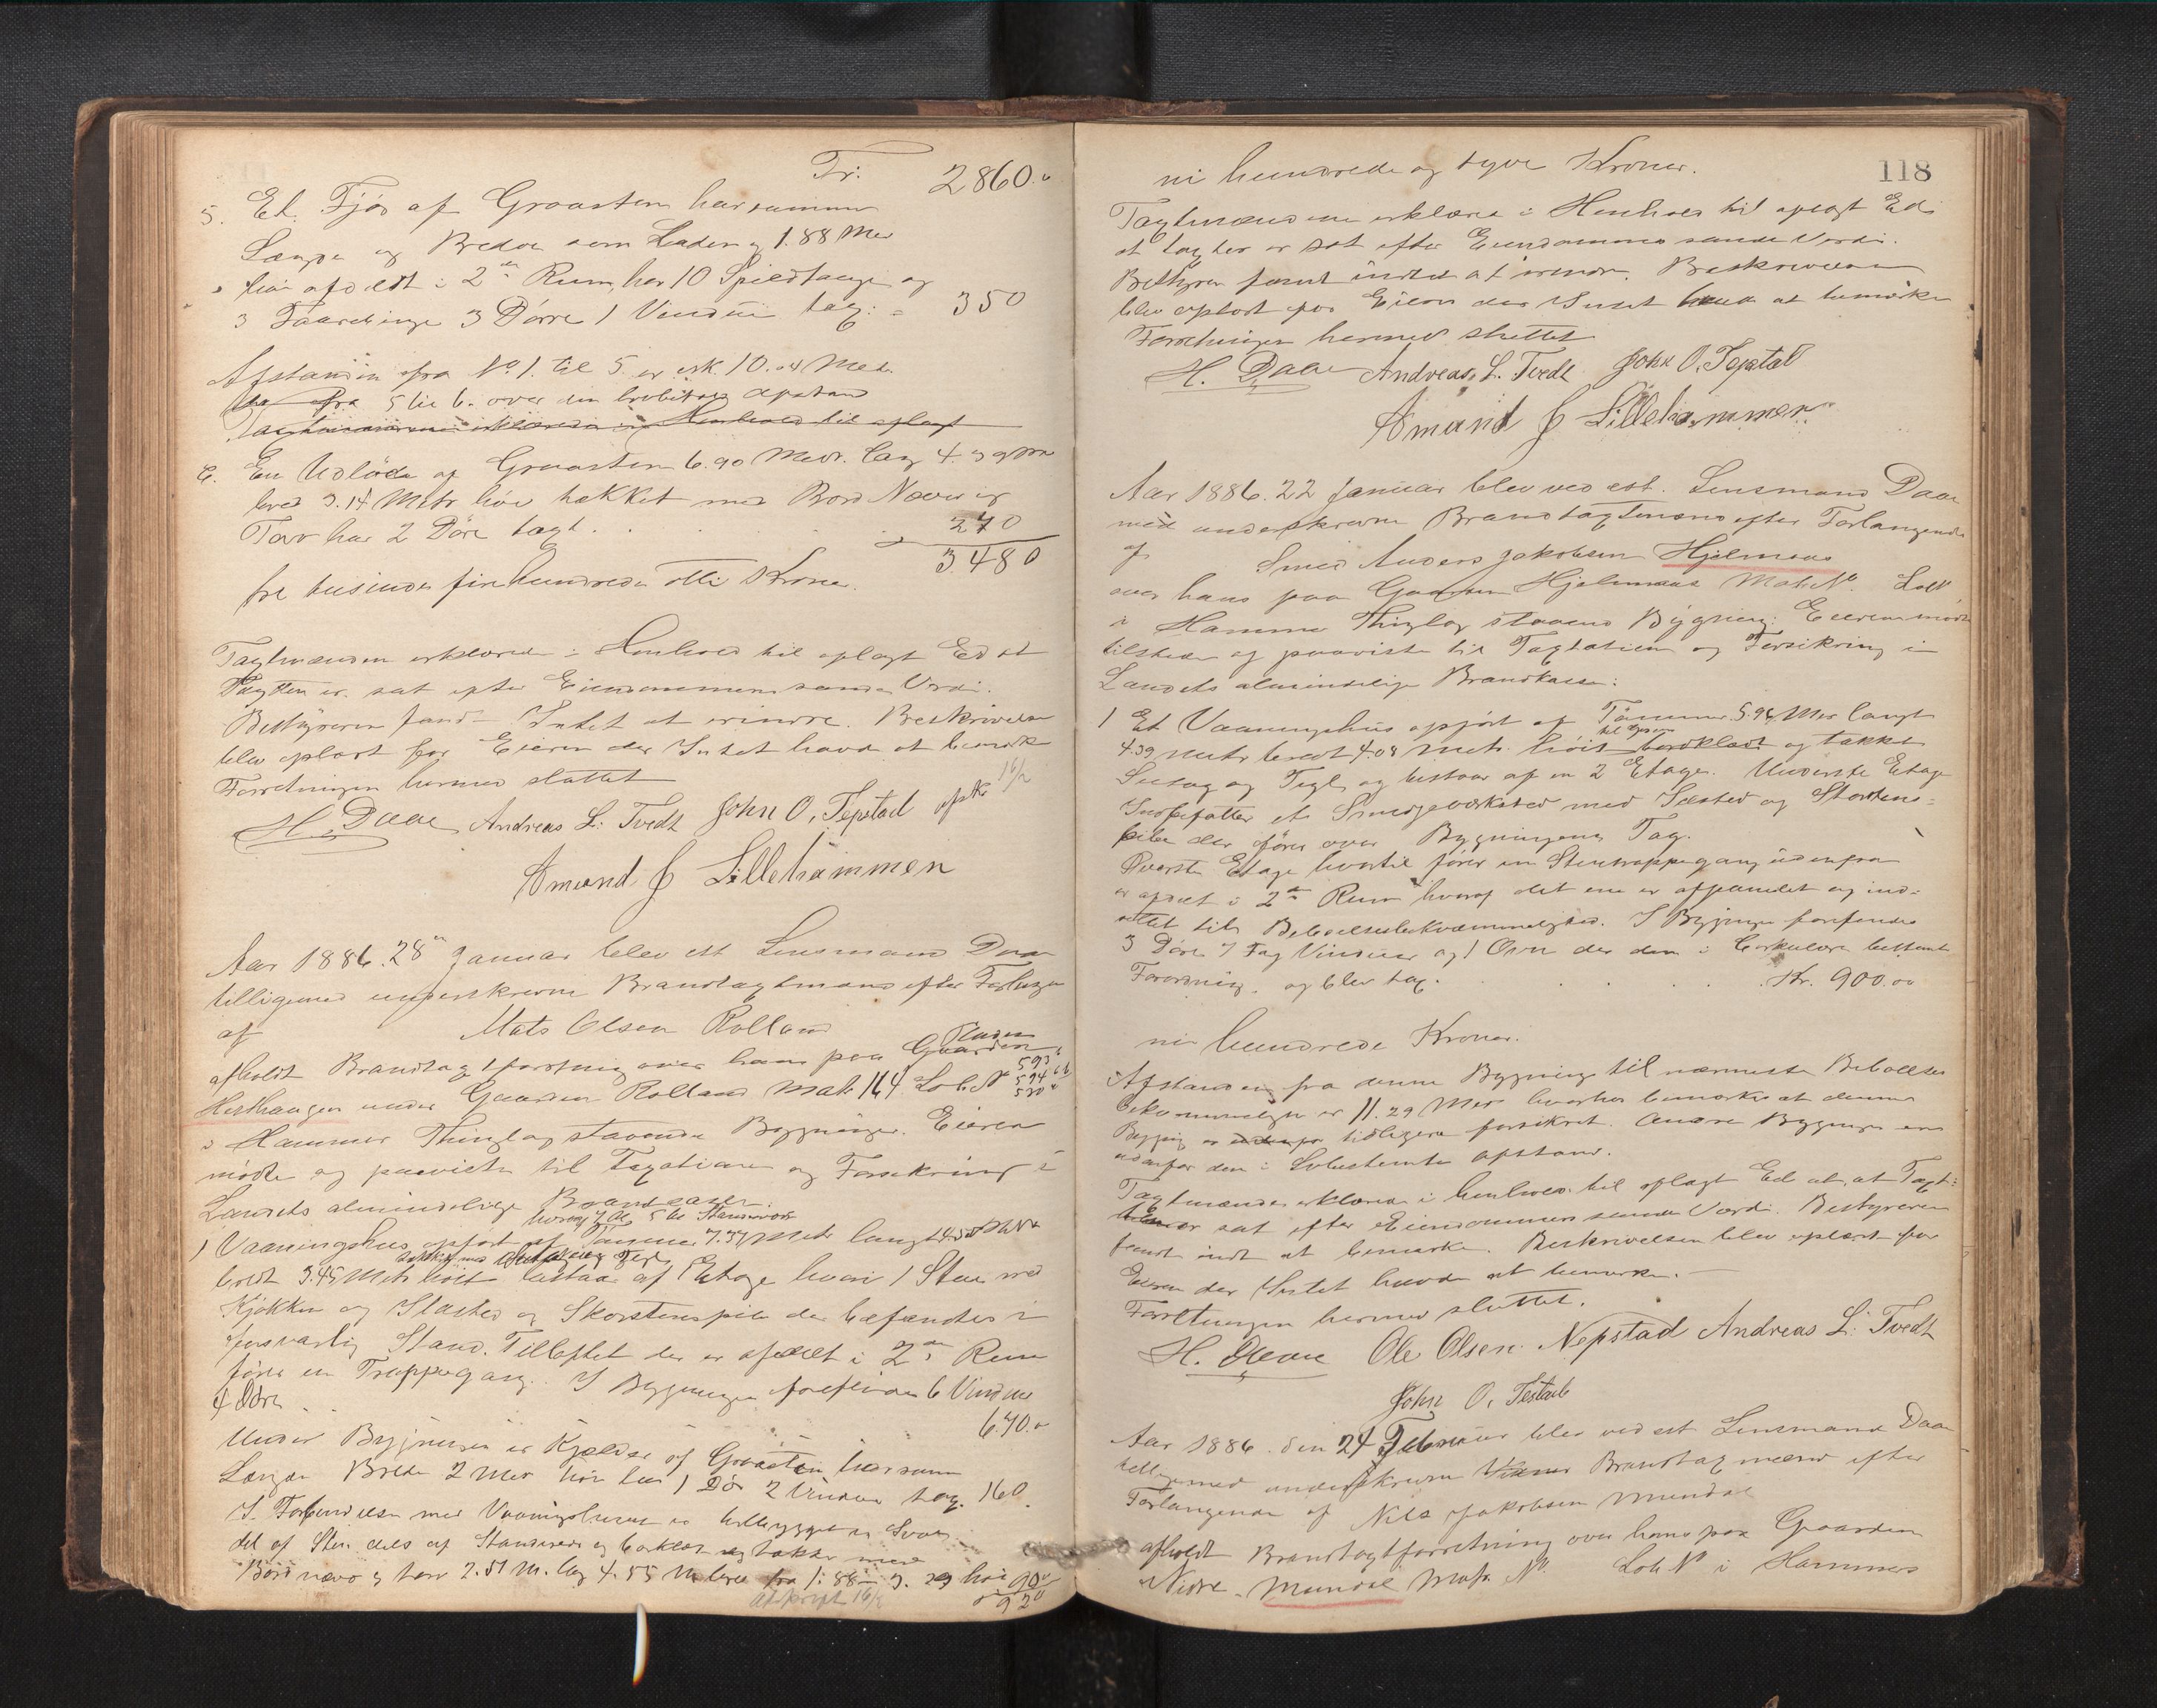 Tr. 2860.
5. Et Fjøs af Graasten har samme
Længe og Brede som Laden og 1.88 Met
høi afdelt i 2de Rum, har 10 Spildtauge og
3 Døre 1 Vindu tax: 350
Afstanden fra No 1. til 5 er crk. 10.04 Met.
fra 5 til 6. over den lovbestemte Afstand
Taxtmændene erklærede i Henhold til aflagt
6. En Udløde af Graasten 6.90 Metr. lang 4.39 Met
bred 3.14 Metr høi tækket med Bord Næver og
Torv har 2 Døre taxt. 270
3480
tre tusinde fire hundrede otti Kroner.
Taxtmænden erklærede i Henhold til aflagt Ed at
Taxten er sat efter Eiendommens sande Værdi.
Bestyreren fandt Intet at erindre. Beskrivelsen
blev oplæst for Eieren der Intet havde at bemærke
Forretningen hermed sluttet
16/2
H. Daae Andreas L. Tvedt John O. Tepstad afsk
Amund J Lillehammen
Aar 1886. 28de Januar blev ved Lensmand Daae
tilligemed underskrevne Brandtaxtmænd efter Forlangende
af Mats Olsen Rolland
Pladsen
afholdt Brandtaxtforretning over hans paa Gaarden
593
Hesthaugen under Gaarden Rolland Mat: 164 Lob. No 594
530
i Hammer Thinglag staaende Bygninger. Eieren
mødte og paaviste til Taxation og Forsikring i
Landets almindelige Brandkasse:
1 Vaaningshus opført af Tømmer 7.37 Metr langt
bredt 3.45 Metr høit bestaar af 1 Etage hvori 1 Stue med
Kjøkken og Ildsted og Skorstenspibe der befandtes i
forsvarlig Stand. Til Loftet der er afdelt i 2de Rum
fører en Trappegang. I Bygningen forefindes 6 Vinduer
4 Døre 640.
Under Bygningen er Kjelder af Graasten har samme
Længde Brede 2 Met høi har 1 Dør 2 Vinduer tax. 160.
I Forbindelse med Vaaningshuset er tilbygget en Sval
del af Sten dels af Standværk og bordklæt og tækket med
Bord næver og torv 2.51 M. lang 4.55 M. bred fra 1.88 - 3. 29 høi 90
920
Afskrift 16/2
118
ni hundrede og tyve Kroner.
Taxtmændene erklærede i Henhold til aflagt Ed
at taxten er sat efter Eiendommens sande Værdi.
Bestyrer fandt intet at erindre. Beskrivelsen
blev oplæst for Eieren der Intet havde at bemærke
Forretningen hermed sluttet
H. Daae Andreas L. Tvedt John O. Tepstad
Amund J Lillehammer
Aar 1886. 22 Januar blev ved cst. Lensmand Daae
med underskrevne Brandtaxtmænd efter Forlangende
af Smed Anders Jakobsen Hjelmaas
over hans paa Gaarden Hjelmaas Mat. No. Lob No
i Hammer Thinglag staaende Bygning. Eieren mødte
tilstede og paaviste til Taxtation og Forsikring i
Landets almindelige Brandkasse:
1 Et Vaaningshus opført af Tømmer 5.96 Met langt
4.39 Metr bredt 4.08 Metr. høit bordklædt og tækket
og Tegl og bestaar af en 2 Etager. Underste Etage
Indbefatter et Smedjeværksted med Ildsted og Skorstens-
pibe der fører over Bygningens Tag.
Øverste Etage hvortil fører en Stentrappegang udenfra
er afdelt i 2de Rum hvoraf det ene er afpanelet og ind-
rettet til Beboelsesbekvemmelighed. I Bygningen forefindes
3 Døre 7 Fag Vinduer og 1 Ovn der den i Cirkulære bestemte
Forordning, og blev tax. Kr. 900.00
ni hundrede Kroner.
Afstanden fra denne Bygning til nærmeste Beboelses
bekvemmelighed er 11.29 Met hvorhos bemærkes at denne
Bygning er tidligere forsikret. Andre Bygninger ere
udenfor den i Lov bestemte Afstand.
Taxtmændene erklærede i henhold til aflagt Ed at Taxt-
en er sat efter Eiendommens sande Værdi. Bestyreren
fandt intet at bemærke. Beskrivelsen blev oplæst for
Eieren der Intet havde at bemærke.
Forretningen hermed sluttet.
H. Daae Ole Olsen Nepstad Andreas L. Tvedt
John O. Tepstad
Aar 1886. den 24 Februar blev ved cst Lensmand Daae
tilligemed underskrevne Brandtaxtmænd efter
Forlangende af Nils Jakobsen Mundal
afholdt Brandtaxtforretning over hans paa Gaarden
Nedre Mundal Mat. No. Lob No i Hammers